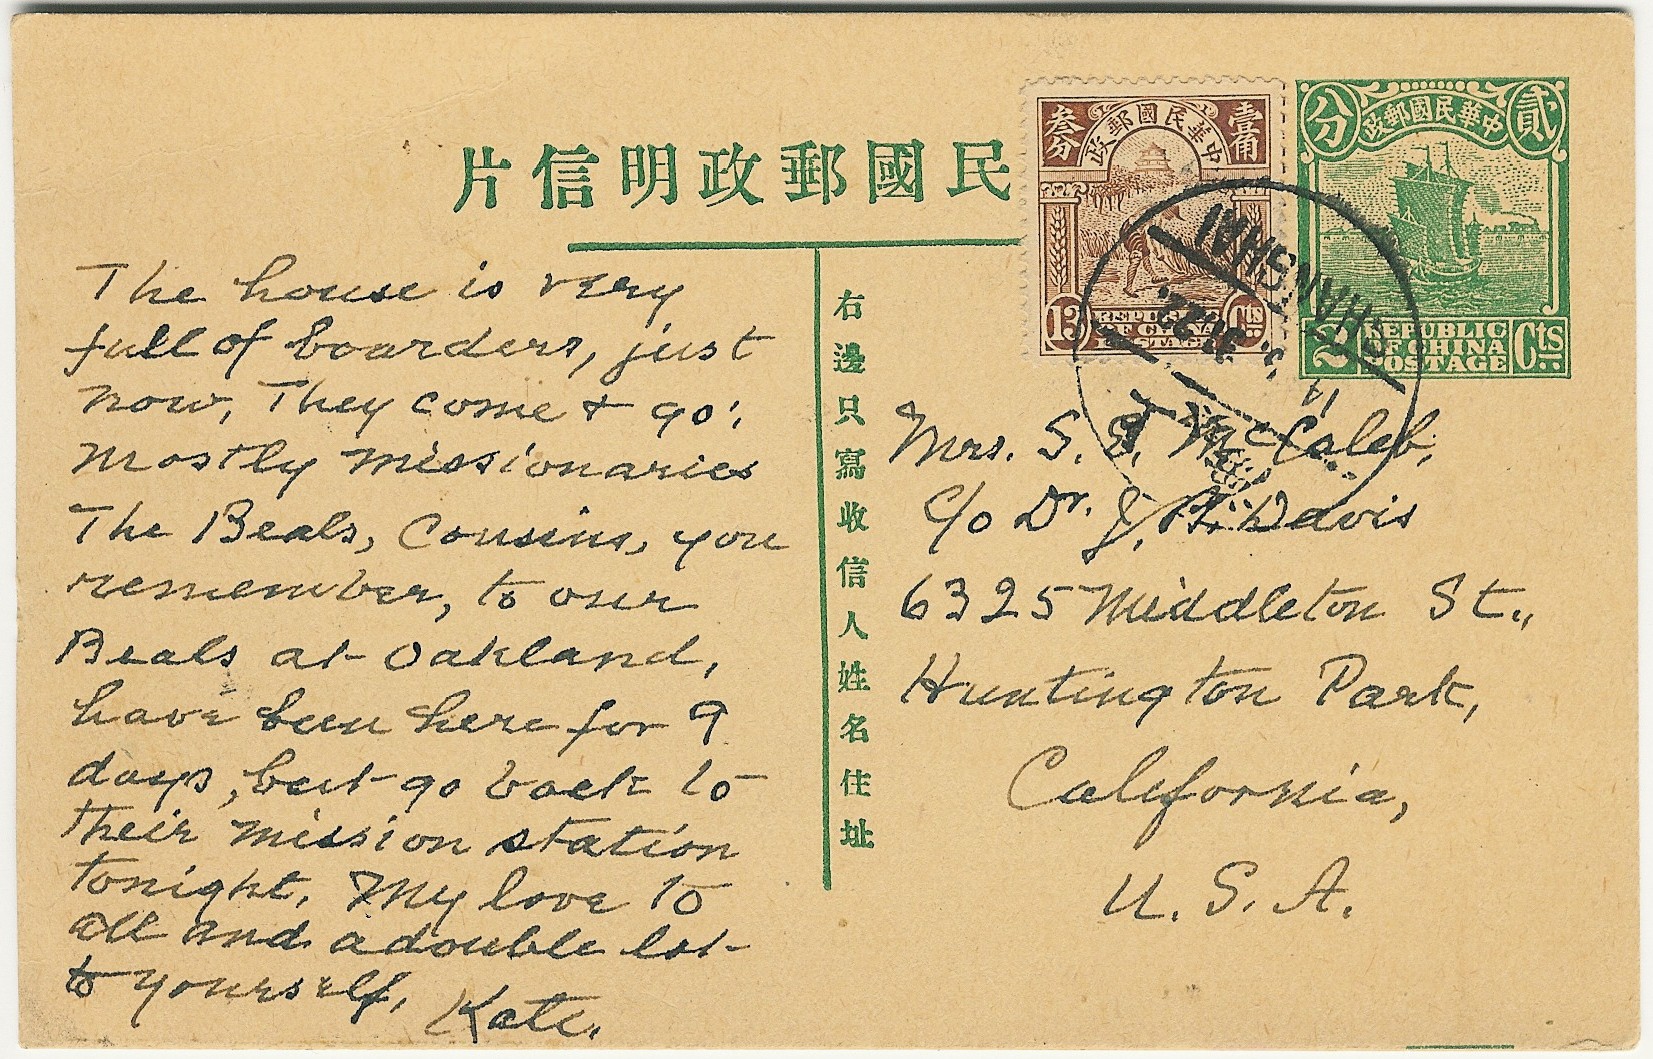 片信明政郵國民
政郵國民華中
壹角
叁分
13 Cts
REPUBLIC
OF CHINA
POSTAGE
政郵國民華中
貳
分
2 Cts
REPUBLIC
OF CHINA
POSTAGE
SHANGHAI
右邊只寫收信人姓名住址
The house is very
full of boarders, just
now, They come + go;
Mostly missionaries
The Beals, Cousins, you
remember, to our
Beals at Oakland,
have been here for 9
days, but go back to
their mission station
tonight. My love to
all and a double lot
to yourself,
Kate.
Mrs. S. E. McCaleb,
c/o Dr. J. Davis
6325 Middleton St.,
Huntington Park,
California,
U. S. A.